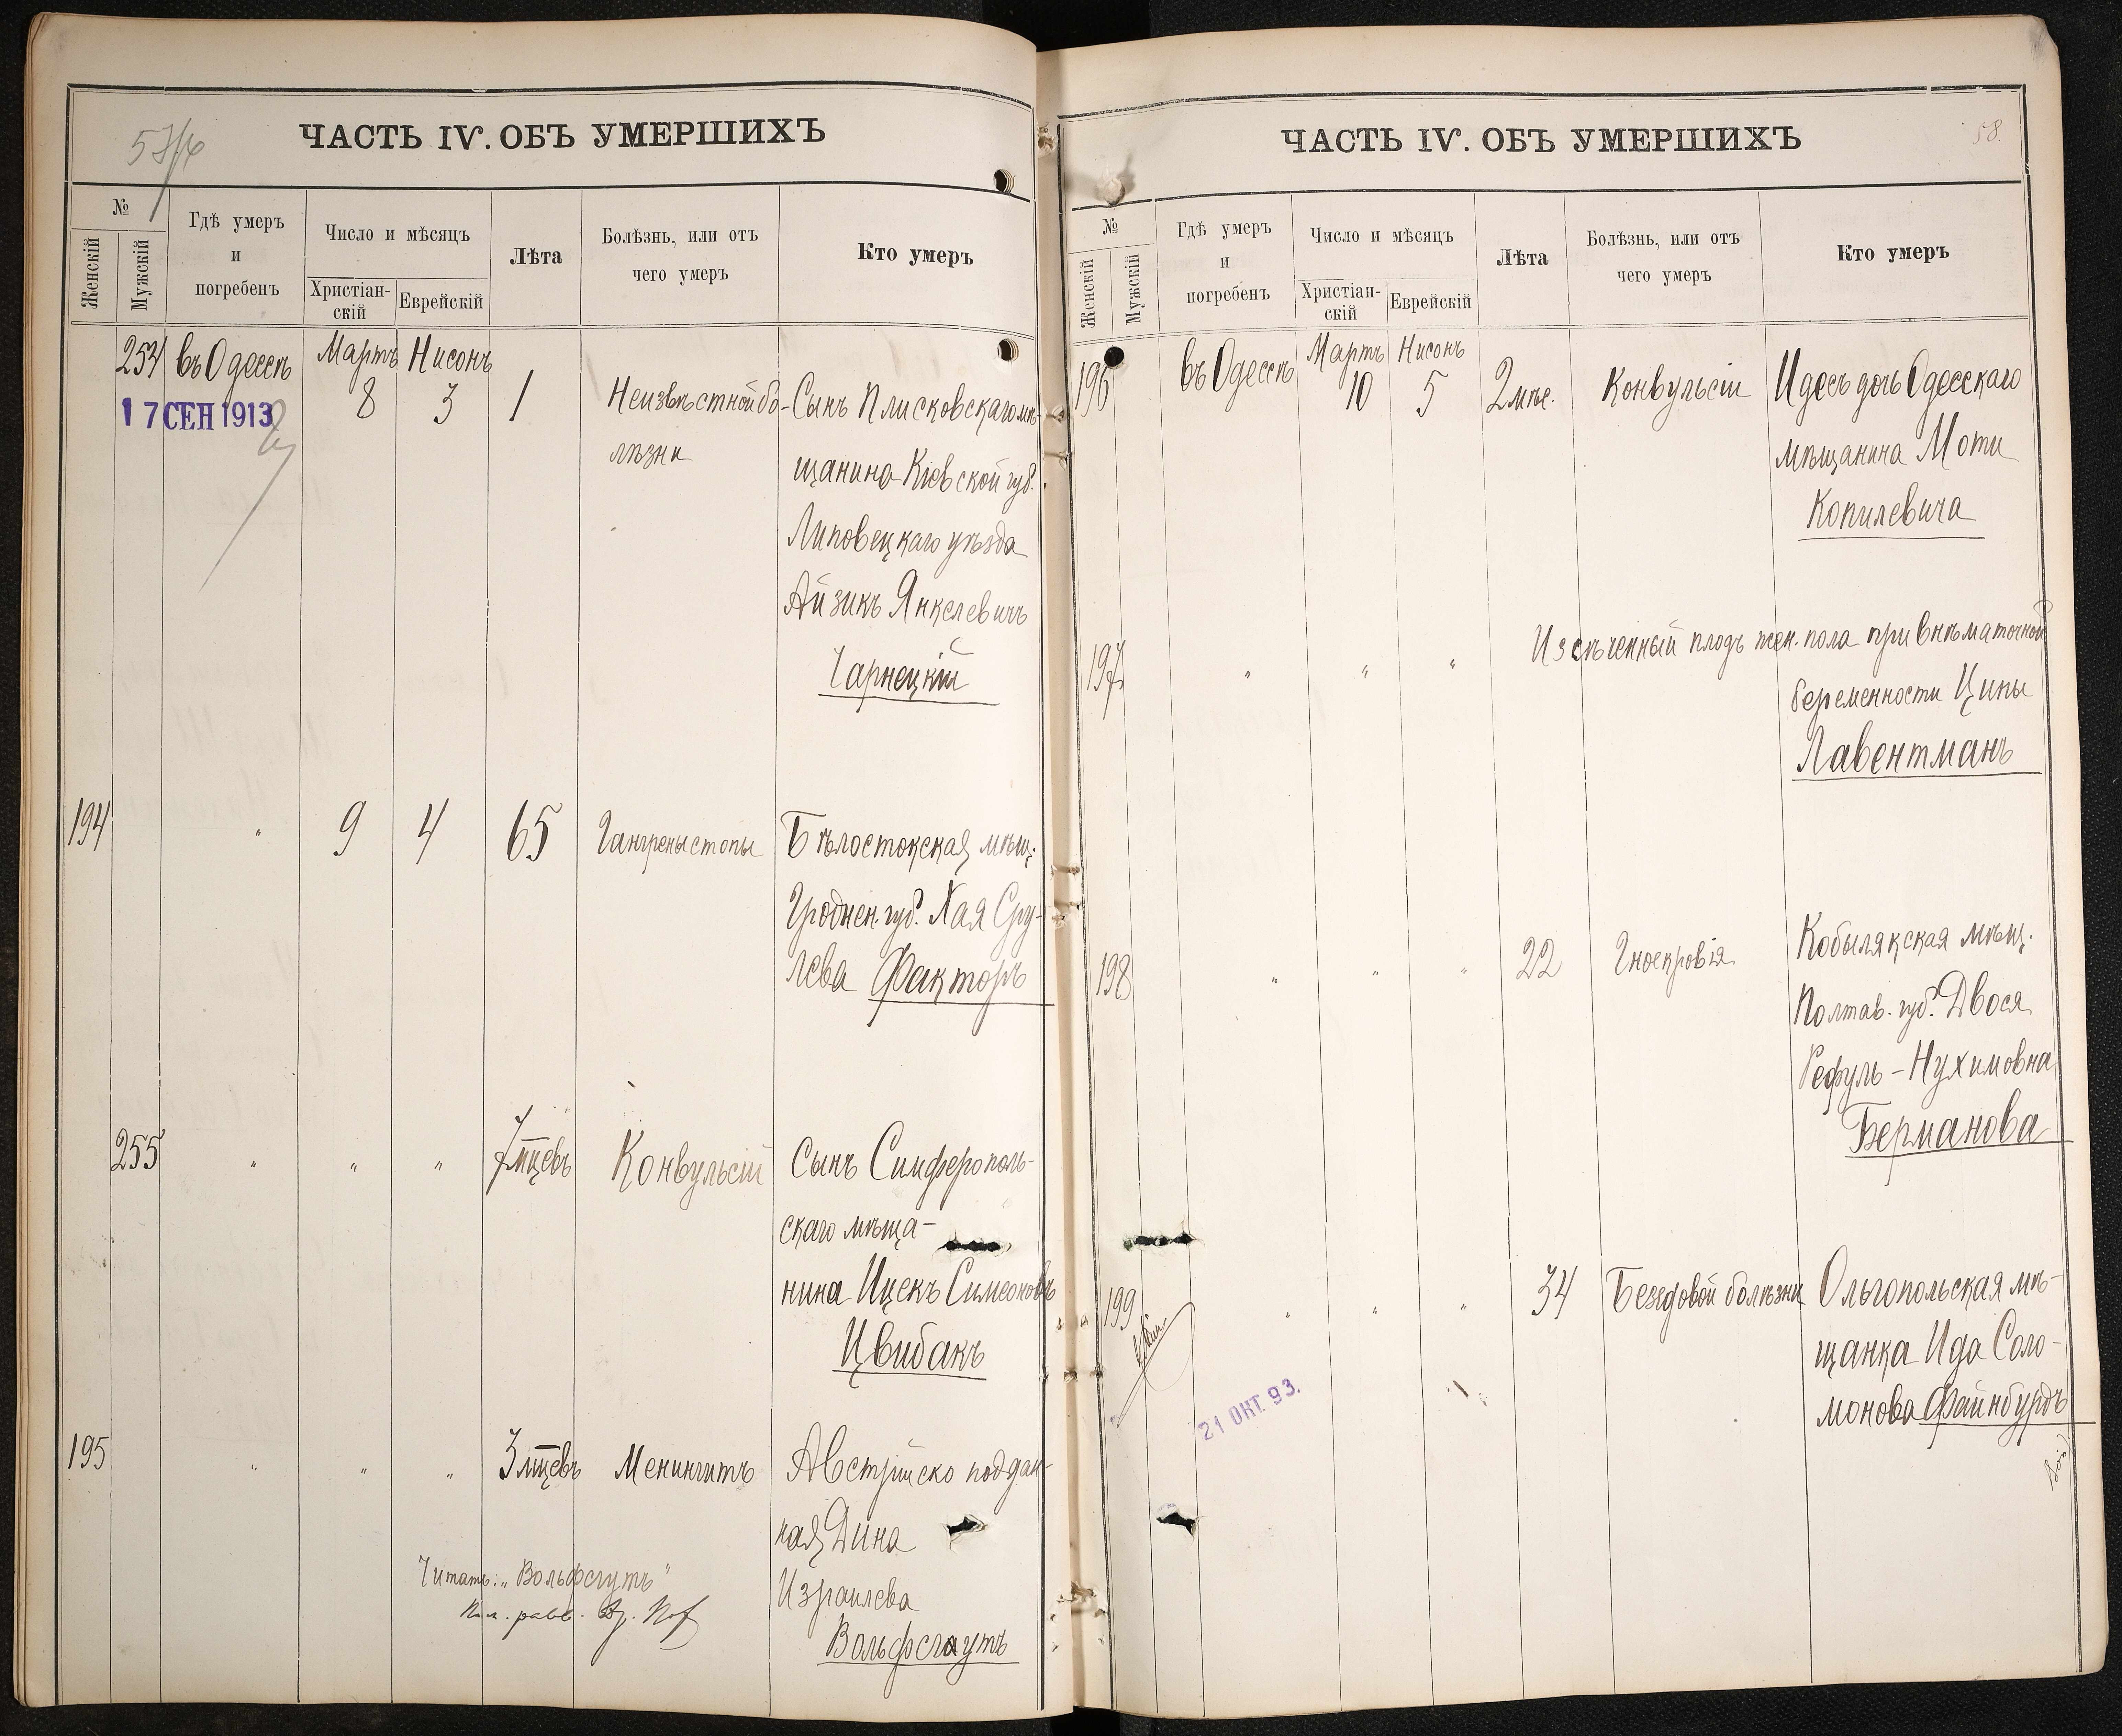 ЧАСТЬ IV. ОБЪ УМЕРШИХЪ
№
Женскій
Мужскій
Гдѣ умеръ
и
погребенъ
Число и мѣсяцъ
Христіан-
скій
Еврейскій
Лѣта
Болѣзнь, или отъ
чего умеръ
Кто умеръ
254 въ Одессѣ Мартъ Нисонъ
8 3 1 Неизвѣстной бо- Сынъ Плисковскаго мѣ-
17 СЕН 1913
лѣзни
щанина Кіевской губ.
Липовецкаго уѣзда
Айзикъ Янкелевичъ
Чарнецкій
194 " 9 4 65 Гангрены стопы Бѣлостокская мѣщ.
Гроднен. губ. Хая Сру-
лева Факторъ
255 " " " 7 мцевъ Конвульсій Сынъ Симферополь-
скаго мѣща-
нина Ицекъ Симеоновъ
Цвибакъ
195 " " " 3 мцевъ Менингитъ Австрійско поддан-
ная Дина
Израилева
Вольфсгаутъ
Читать: „Вольфсгутъ"
ЧАСТЬ IV. ОБЪ УМЕРШИХЪ
58.
№
Женскій
Мужскій
Гдѣ умеръ
и
погребенъ
Число и мѣсяцъ
Христіан-
скій
Еврейскій
Лѣта
Болѣзнь, или отъ
чего умеръ
Кто умеръ
196 въ Одессѣ Мартъ Нисонъ
10 5 2 мѣс. Конвульсіи Идесъ дочь Одесскаго
мѣщанина Моти
Копилевича
197 " " " Изсѣченный плодъ жен. пола при внѣматочной
беременности Ципы
Лавентманъ
198 " " " 22 Гноекровія Кобылякская мѣщ.
Полтав. губ. Двося
Рефуль-Нухимовна
Берманова
199 " " " 34 Безедовой болѣзни Ольгопольская мѣ-
щанка Ида Соло-
монова Файнбурдъ
21 ОКТ. 93.